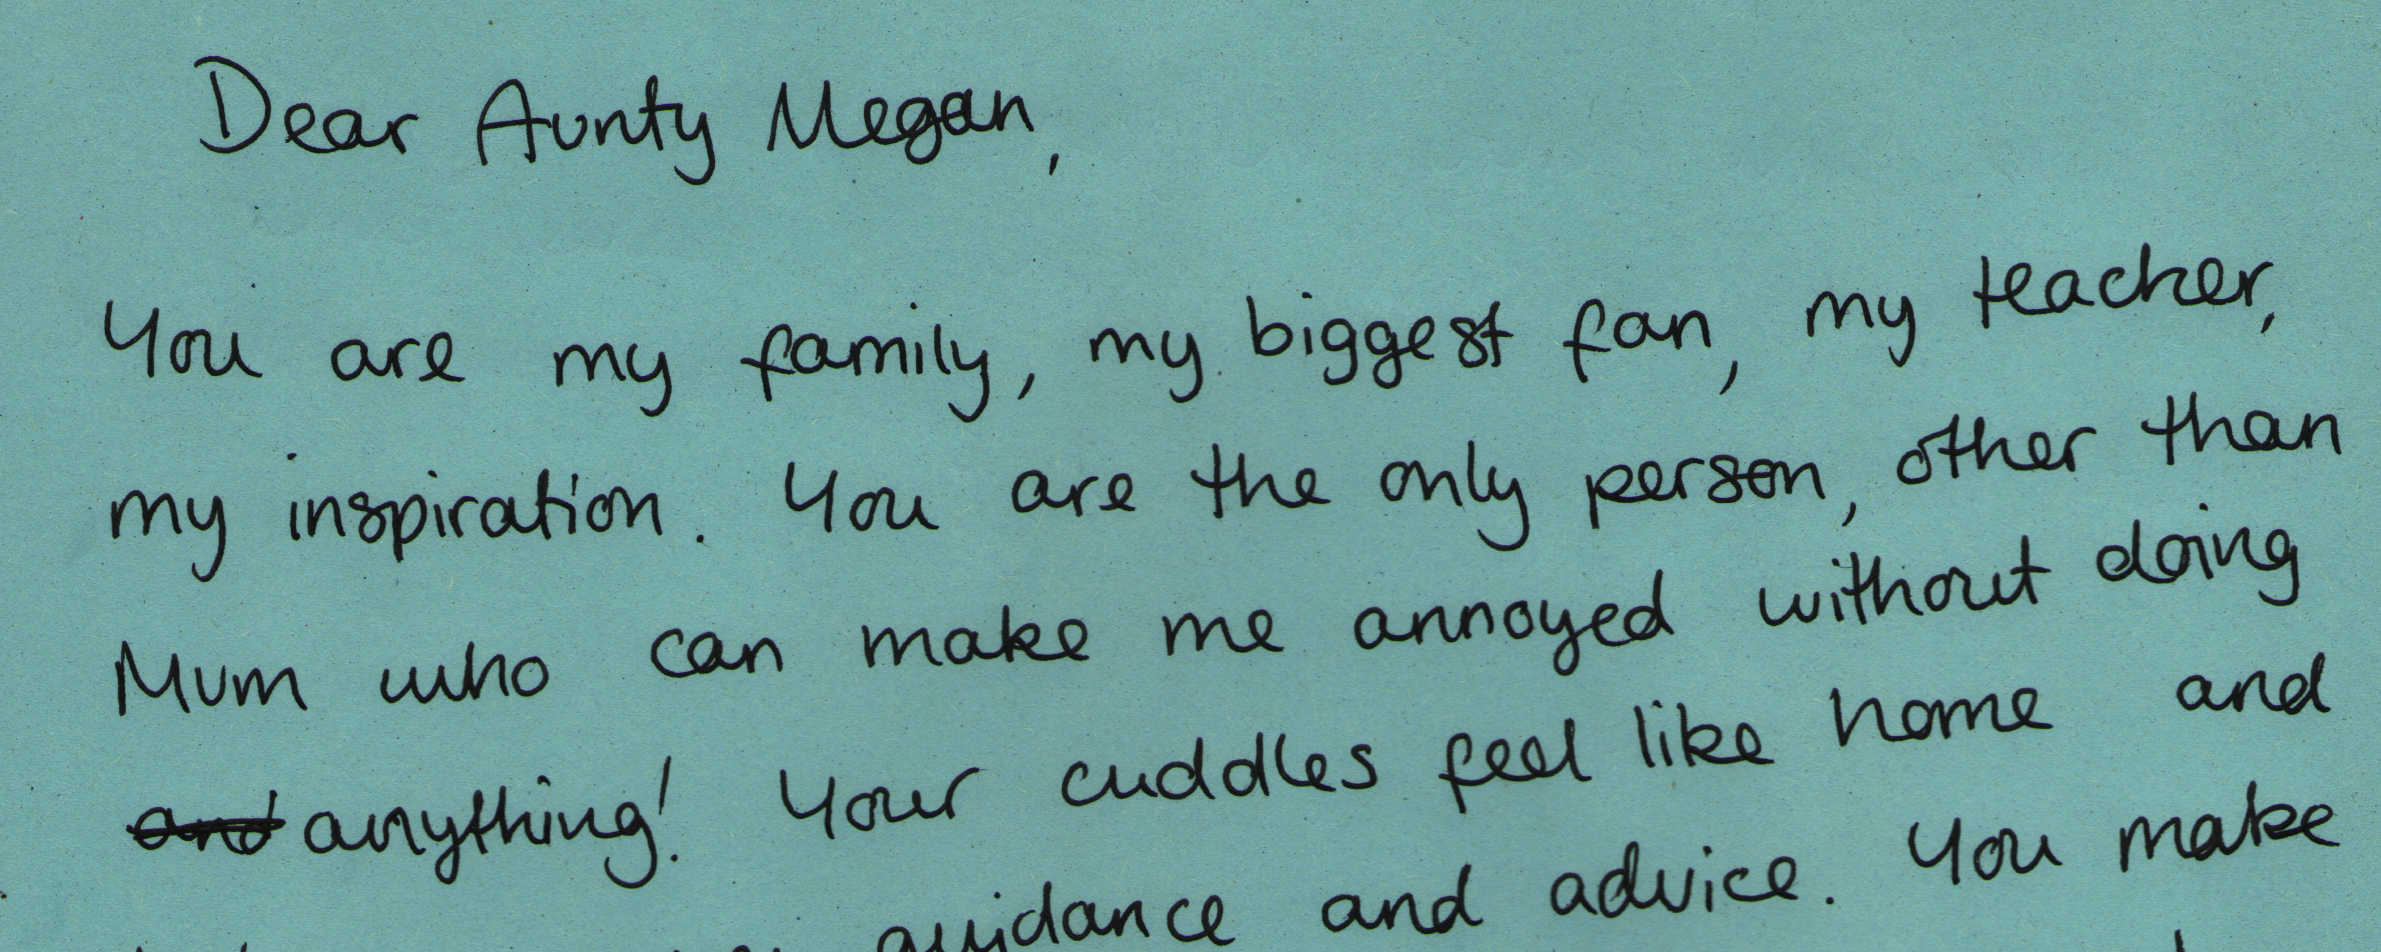 Dear Aunty Megan,
You are my family, my biggest fan, my teacher,
my inspiration. You are the only person, other than
Mum who can make me annoyed without doing
and anything! Your cuddles feel like home and
guidance and advice. You make